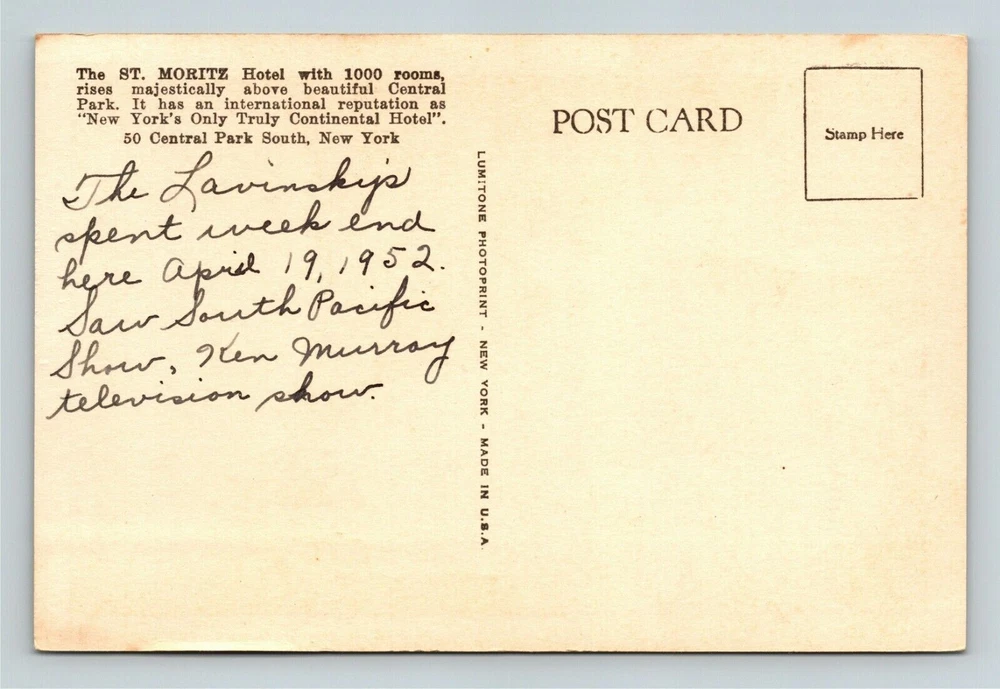 The ST. MORITZ Hotel with 1000 rooms,
rises majestically above beautiful Central
Park. It has an international reputation as
"New York's Only Truly Continental Hotel".
50 Central Park South, New York
The Lavinsky's
spent week end
here April 19, 1952.
Saw South Pacific
Show, Ken Murray
television show.
LUMITONE PHOTOPRINT - NEW YORK - MADE IN U.S.A.
POST CARD
Stamp Here